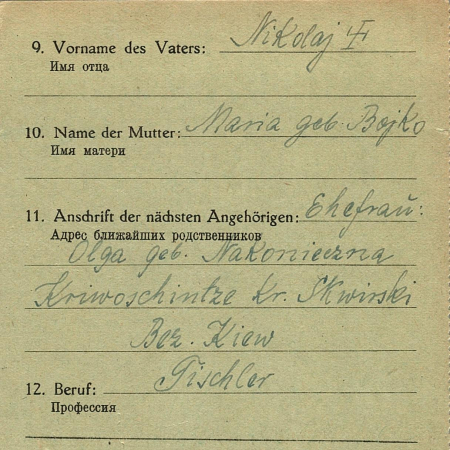 9. Vorname des Vaters: Nikolaj
Имя отца
10. Name der Mutter: Maria geb. Bojko
Имя матери
11. Anschrift der nächsten Angehörigen: Ehefrau:
Адрес ближайших родственников
Olga geb. Nakonieczna
Kriwoschintze Kr. Skwirski
Bez. Kiew
12. Beruf: Tischler
Профессия